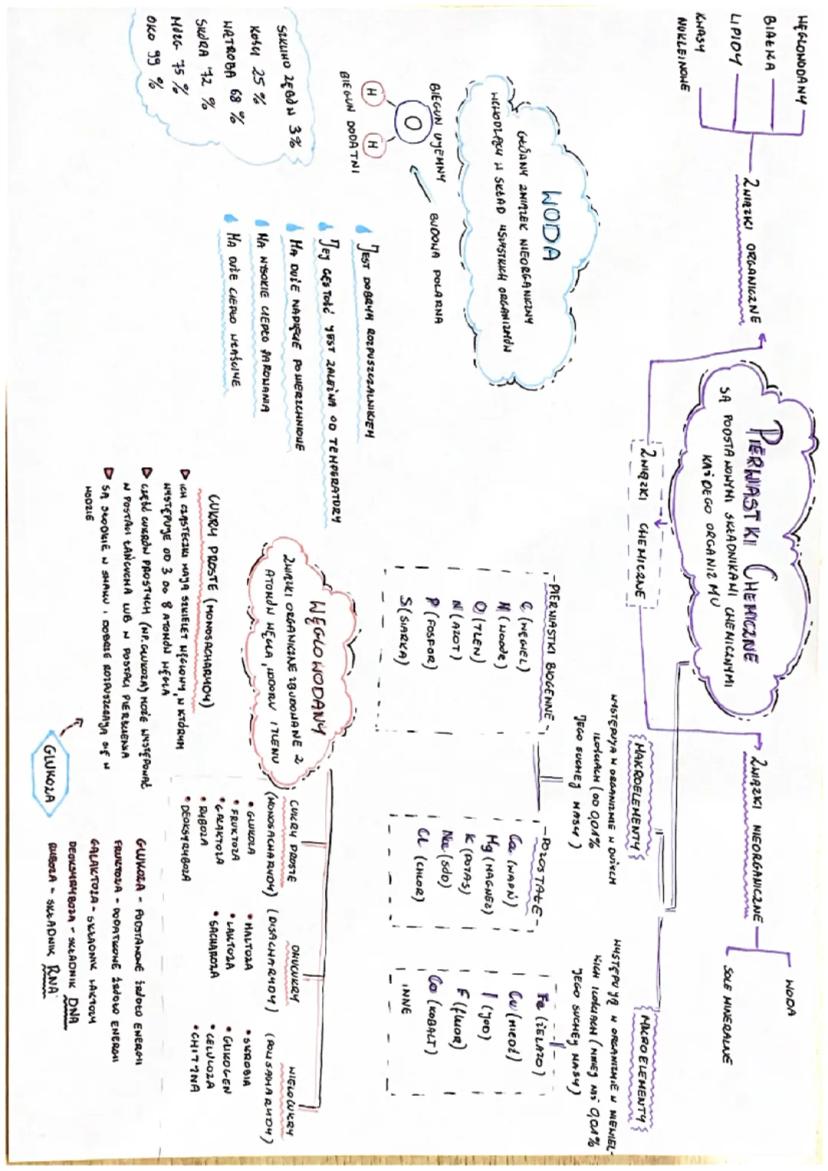 PIERWIASTKI CHEMICZNE
SĄ PODSTAWOWYMI SKŁADNIKAMI CHEMICZNYMI
KAŻDEGO ORGANIZMU
ZWIĄZKI CHEMICZNE
ZWIĄZKI ORGANICZNE
WĘGLOWODANY
BIAŁKA
LIPIDY
KWASY
NUKLEINOWE
ZWIĄZKI NIEORGANICZNE
WODA
SOLE MINERALNE
MAKROELEMENTY
WYSTĘPUJĄ W ORGANIZMIE W DUŻYCH
ILOŚCIACH (OD 0,01%
JEGO SUCHEJ MASY)
MIKROELEMENTY
WYSTĘPUJĄ W ORGANIZMIE W NIEWIEL-
KICH ILOŚCIACH (MNIEJ NIŻ 0,01%
JEGO SUCHEJ MASY)
PIERWIASTKI BIOGENNE
C (WĘGIEL)
H (WODÓR)
O (TLEN)
N (AZOT)
P (FOSFOR)
S (SIARKA)
POZOSTAŁE
Ca (WAPŃ)
Mg (MAGNEZ)
K (POTAS)
Na (SÓD)
Cl (CHLOR)
Fe (ŻELAZO)
Cu (MIEDŹ)
I (JOD)
F (FLUOR)
Co (KOBALT)
INNE
WODA
GŁÓWNY ZWIĄZEK NIEORGANICZNY
WCHODZĄCY W SKŁAD WSZYSTKICH ORGANIZMÓW
BUDOWA POLARNA
BIEGUN UJEMNY
O
H H
BIEGUN DODATNI
JEST DOBRYM ROZPUSZCZALNIKIEM
JEJ GĘSTOŚĆ JEST ZALEŻNA OD TEMPERATURY
MA DUŻE NAPIĘCIE POWIERZCHNIOWE
MA WYSOKIE CIEPŁO PAROWANIA
MA DUŻE CIEPŁO WŁAŚCIWE
SZKLIWO ZĘBÓW 3%
KOŚCI 25 %
WĄTROBA 68 %
SKÓRA 72 %
MÓZG 75 %
OKO 99 %
WĘGLOWODANY
ZWIĄZKI ORGANICZNE ZBUDOWANE Z
ATOMÓW WĘGLA, WODORU I TLENU
CUKRY PROSTE
(MONOSACHARYDY)
GLUKOZA
FRUKTOZA
GALAKTOZA
RYBOZA
DEOKSYRYBOZA
DWUCUKRY
(DISACHARYDY)
MALTOZA
LAKTOZA
SACHAROZA
WIELOCUKRY
(POLISACHARYDY)
SKROBIA
GLIKOGEN
CELULOZA
CHITYNA
CUKRY PROSTE (MONOSACHARYDY)
ICH CZĄSTECZKI MAJĄ SZKIELET WĘGLOWY, W KTÓRYM
WYSTĘPUJE OD 3 DO 8 ATOMÓW WĘGLA
CZĘŚĆ CUKRÓW PROSTYCH (NP. GLUKOZA) MOŻE WYSTĘPOWAĆ
W POSTACI ŁAŃCUCHA LUB W POSTACI PIERŚCIENIA
SĄ SŁODKIE W SMAKU I DOBRZE ROZPUSZCZAJĄ SIĘ W
WODZIE
GLUKOZA
GLUKOZA - PODSTAWOWE ŹRÓDŁO ENERGII
FRUKTOZA - DODATKOWE ŹRÓDŁO ENERGII
GALAKTOZA - SKŁADNIK LAKTOZY
DEOKSYRYBOZA - SKŁADNIK DNA
RYBOZA - SKŁADNIK RNA